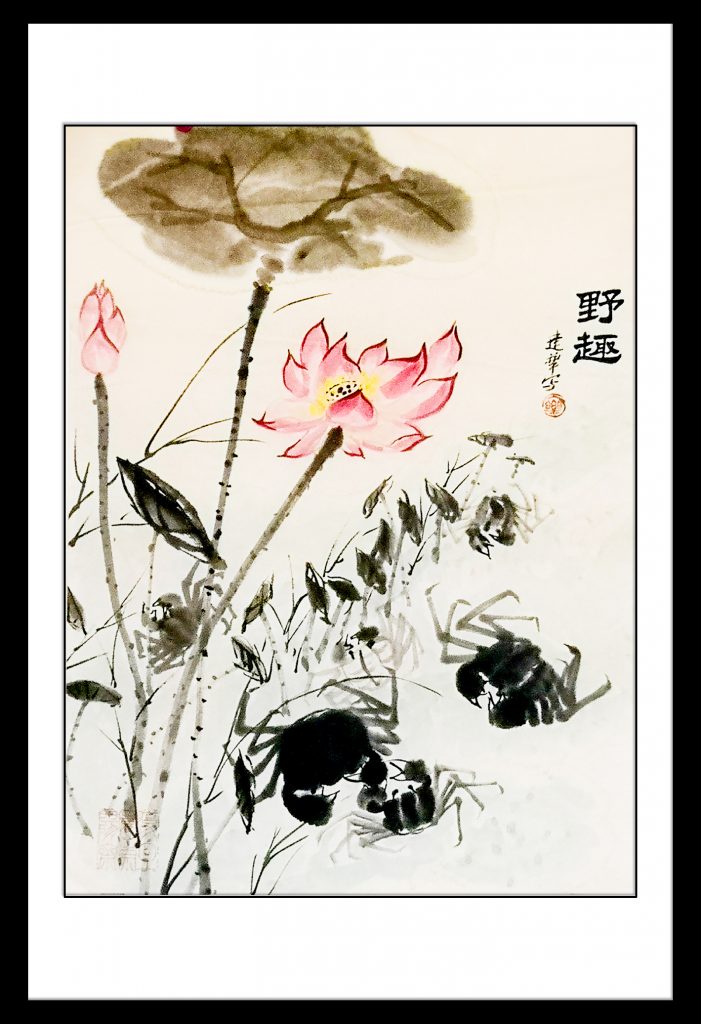 野趣
建華写